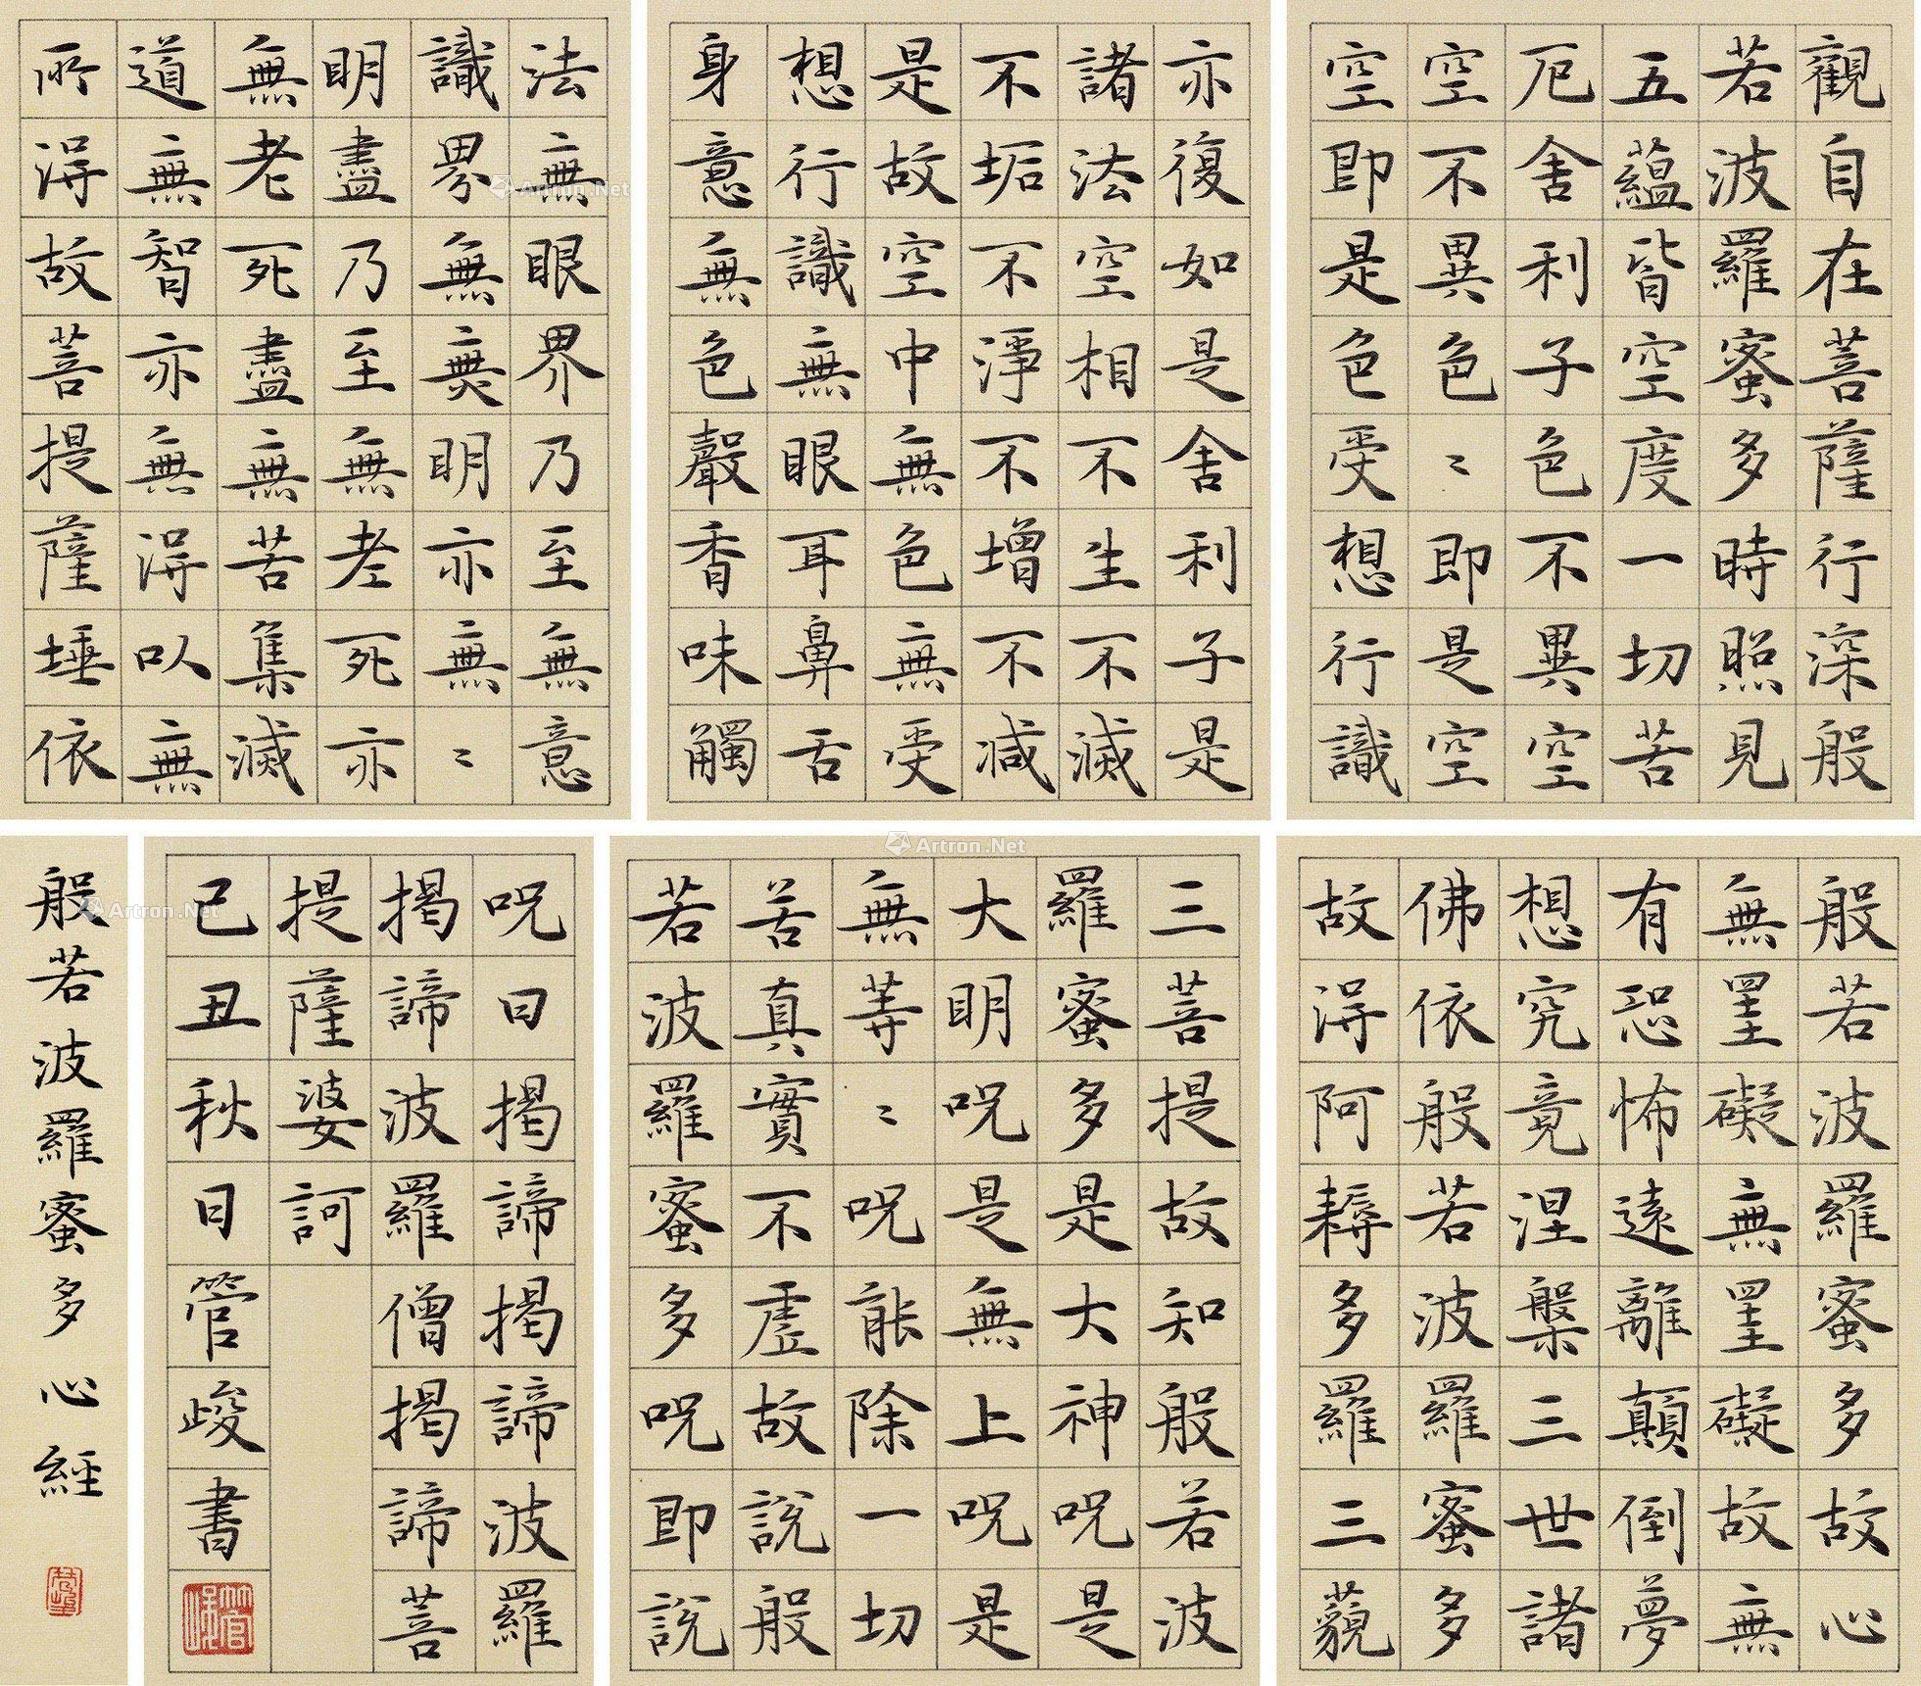 觀自在菩薩行深般
若波羅蜜多時照見
五蘊皆空度一切苦
厄舍利子色不異空
空不異色〻即是空
空即是色受想行識
亦復如是舍利子是
諸法空相不生不滅
不垢不淨不增不減
是故空中無色無受
想行識無眼耳鼻舌
身意無色聲香味觸
法無眼界乃至無意
識界無無明亦無〻
明盡乃至無老死亦
無老死盡無苦集滅
道無智亦無得以無
所得故菩提薩埵依
般若波羅蜜多故心
無罣礙無罣礙故無
有恐怖遠離顛倒夢
想究竟涅槃三世諸
佛依般若波羅蜜多
故得阿耨多羅三藐
三菩提故知般若波
羅蜜多是大神咒是
大明咒是無上咒是
無等〻咒能除一切
苦真實不虛故說般
若波羅蜜多咒即說
咒曰揭諦揭諦波羅
揭諦波羅僧揭諦菩
提薩婆訶
己丑秋日管峻書
管峻
般若波羅蜜多心經
Artron.Net
Artron.Net
Artron.Net